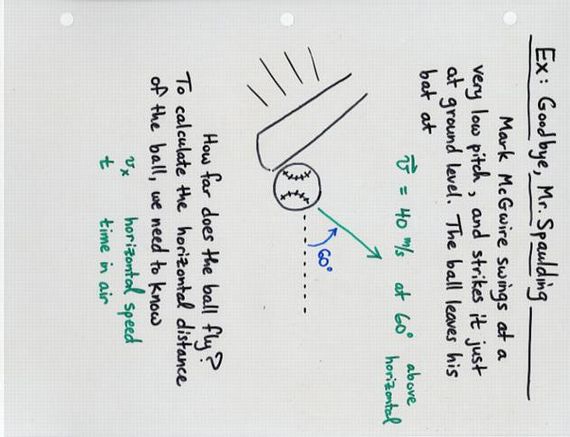 Ex: Goodbye, Mr. Spaulding
Mark McGwire swings at a
very low pitch, and strikes it just
at ground level. The ball leaves his
bat at
v⃗ = 40 m/s at 60° above
horizontal
60°
How far does the ball fly?
To calculate the horizontal distance
of the ball, we need to know
vx horizontal speed
t time in air